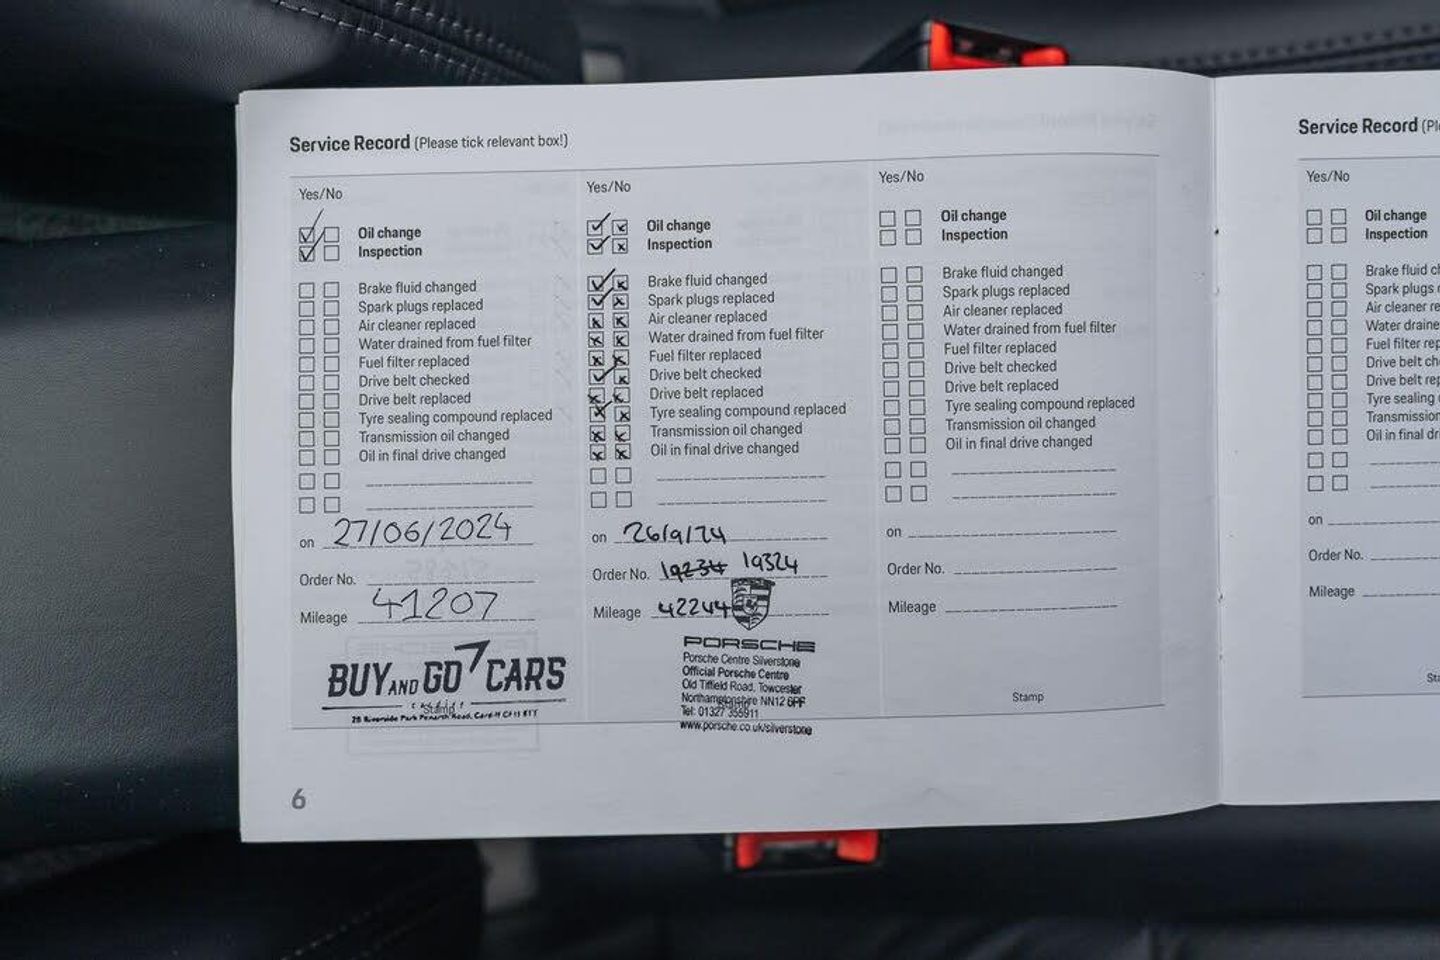 Service Record (Please tick relevant box!)
Yes/No
Oil change
Inspection
Brake fluid changed
Spark plugs replaced
Air cleaner replaced
Water drained from fuel filter
Fuel filter replaced
Drive belt checked
Drive belt replaced
Tyre sealing compound replaced
Transmission oil changed
Oil in final drive changed
on 27/06/2024
Order No.
Mileage 41207
BUY AND GO CARS
Stamp
Yes/No
Oil change
Inspection
Brake fluid changed
Spark plugs replaced
Air cleaner replaced
Water drained from fuel filter
Fuel filter replaced
Drive belt checked
Drive belt replaced
Tyre sealing compound replaced
Transmission oil changed
Oil in final drive changed
on 26/9/24
Order No. 19234 19324
Mileage 42244
PORSCHE
Porsche Centre Silverstone
Official Porsche Centre
Old Tiffield Road, Towcester
Northamptonshire NN12 6PF
Stamp
Tel: 01327 355911
www.porsche.co.uk/silverstone
Yes/No
Oil change
Inspection
Brake fluid changed
Spark plugs replaced
Air cleaner replaced
Water drained from fuel filter
Fuel filter replaced
Drive belt checked
Drive belt replaced
Tyre sealing compound replaced
Transmission oil changed
Oil in final drive changed
on
Order No.
Mileage
Stamp
6
Service Record (Pl
Yes/No
Oil change
Inspection
Brake fluid c
Spark plugs
Air cleaner re
Water draine
Fuel filter rep
Drive belt ch
Drive belt rep
Tyre sealing
Transmission
Oil in final dr
on
Order No.
Mileage
Sta